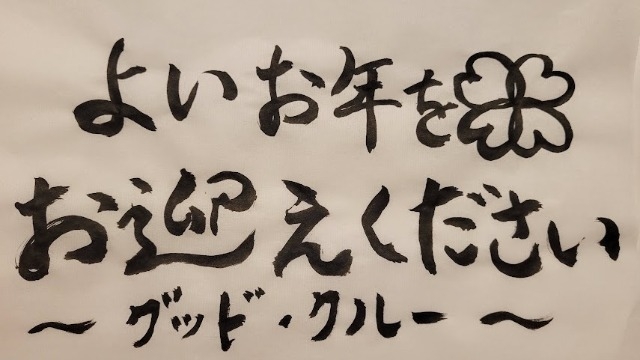 よいお年を
お迎えください
～グッド・クルー～